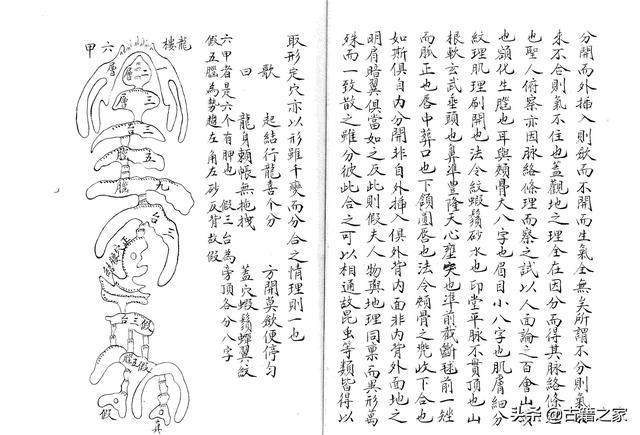 分開而外插入則歛而不開而生氣全無矣所謂不分則氣
來不合則氣不住也蓋觀地之理全在因分而得其脉絡條
也聖人俯察亦因脉絡條理而察之試以人面論之百會山
也顖化生腦也耳與頰骨大八字也眉目小八字也肌膚細分
紋理肌理刷開也法令紋蝦鬚砂水也印堂平脉不貫頂也山
根軟玄武垂頭也鼻準豊隆天心壅突也準前截斷毬前一
而脈正也唇中葬口也下頷圓唇也法令頰骨之兜收下合也
如斯俱自内分開非自外插入俱外背内面非内背外面地之
明肩暗翼俱當如之反此則假夫人物與地理同禀而異形萬
殊而一致散之雖分彼此合之可以相通故昆虫等類皆得以
取形定穴亦以形雖千變而分合之情理則一也
歌 起結行龍喜个分 方開莫歛便停勻
曰 龍身頼帳無拖拽 蓋穴蝦鬚蟬翼紋
六甲者是六个有胛也 假三台為旁頂各分八字
假五腦為勢趨左角左砂反背故假
龍樓
六甲
二
層
層
三
台
五
腦
九
腦
三
台
假三台
假五腦
假
真
假
头条 @古籍之家